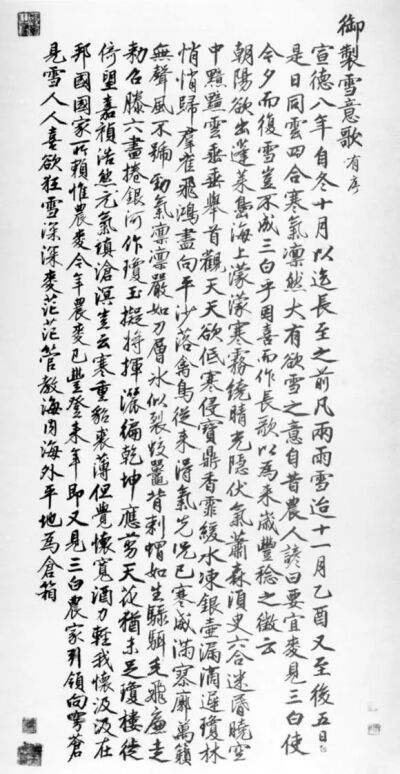 御製雪意歌有序
宣德八年自冬十月以迄長至之前凡兩雨雪迨十一月乙酉又至後五日也
是日同雲四合寒氣凛然大有欲雪之意自昔農人諺曰要宜麥見三白使
今夕而復雪豈不成三白乎因喜而作長歌以為来歲豐稔之徵云
朝陽欲出蓬萊島海上濛濛寒霧繞晴光隱伏氣蕭森須臾六合迷昏曉空
中黯黯雲垂垂舉首觀天天欲低寒侵寶鼎香霏緩水凍銀壺漏滴遲瓊林
悄悄歸羣雀飛鴻盡向平沙落禽鳥從来得氣先況已寒威滿寥廓萬籟
無聲風不號勁氣凛凛嚴如刀層氷似裂蛟鼉背刺蝟如生騄駬毛飛廉走
勑召滕六畫捲銀河作瓊玉擬将揮灑徧乾坤應剪天花猶未足瓊樓徙
倚望嘉禎浩然元氣填滄溟豈云寒重貂裘薄但覺懷寬酒力輕我懷汲汲在
邦國國家所賴惟農麥今年農麥已豐登来年即又見三白農家引領向穹蒼
見雪人人喜欲狂雪深深麥茫茫管教海内海外平地為倉箱